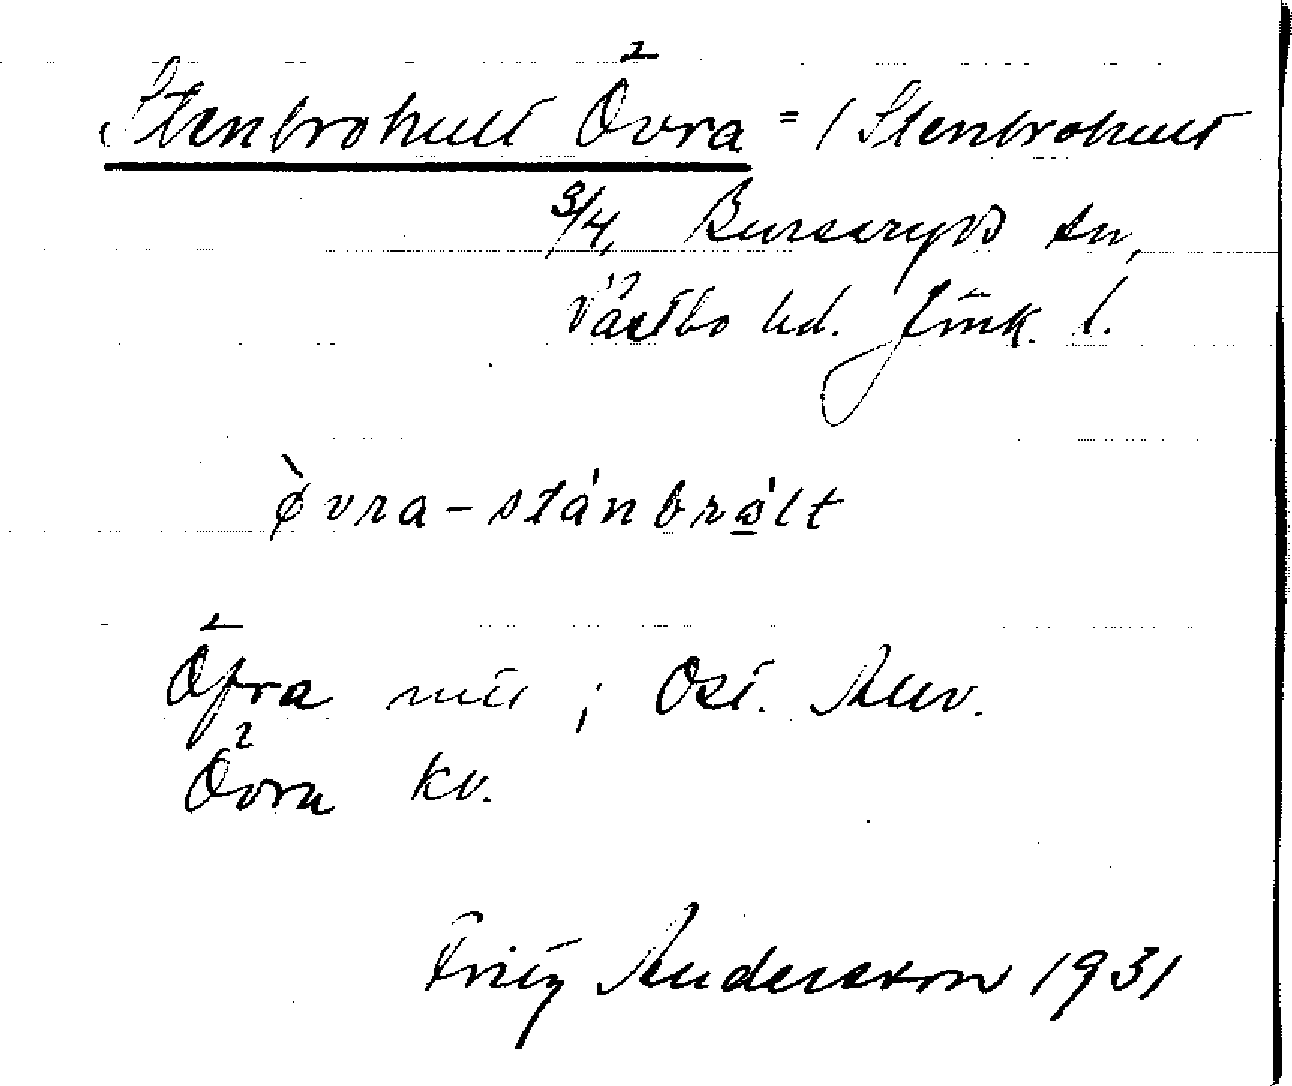 Stenbrohult Övra = / Stenbrohult
3/4, Burseryds sn,
Västbo hd. Jönk. l.
øvra-stánbrålt
Öfra ; Ost. Muv.
Övra kv.
Fritz Andersson 1931